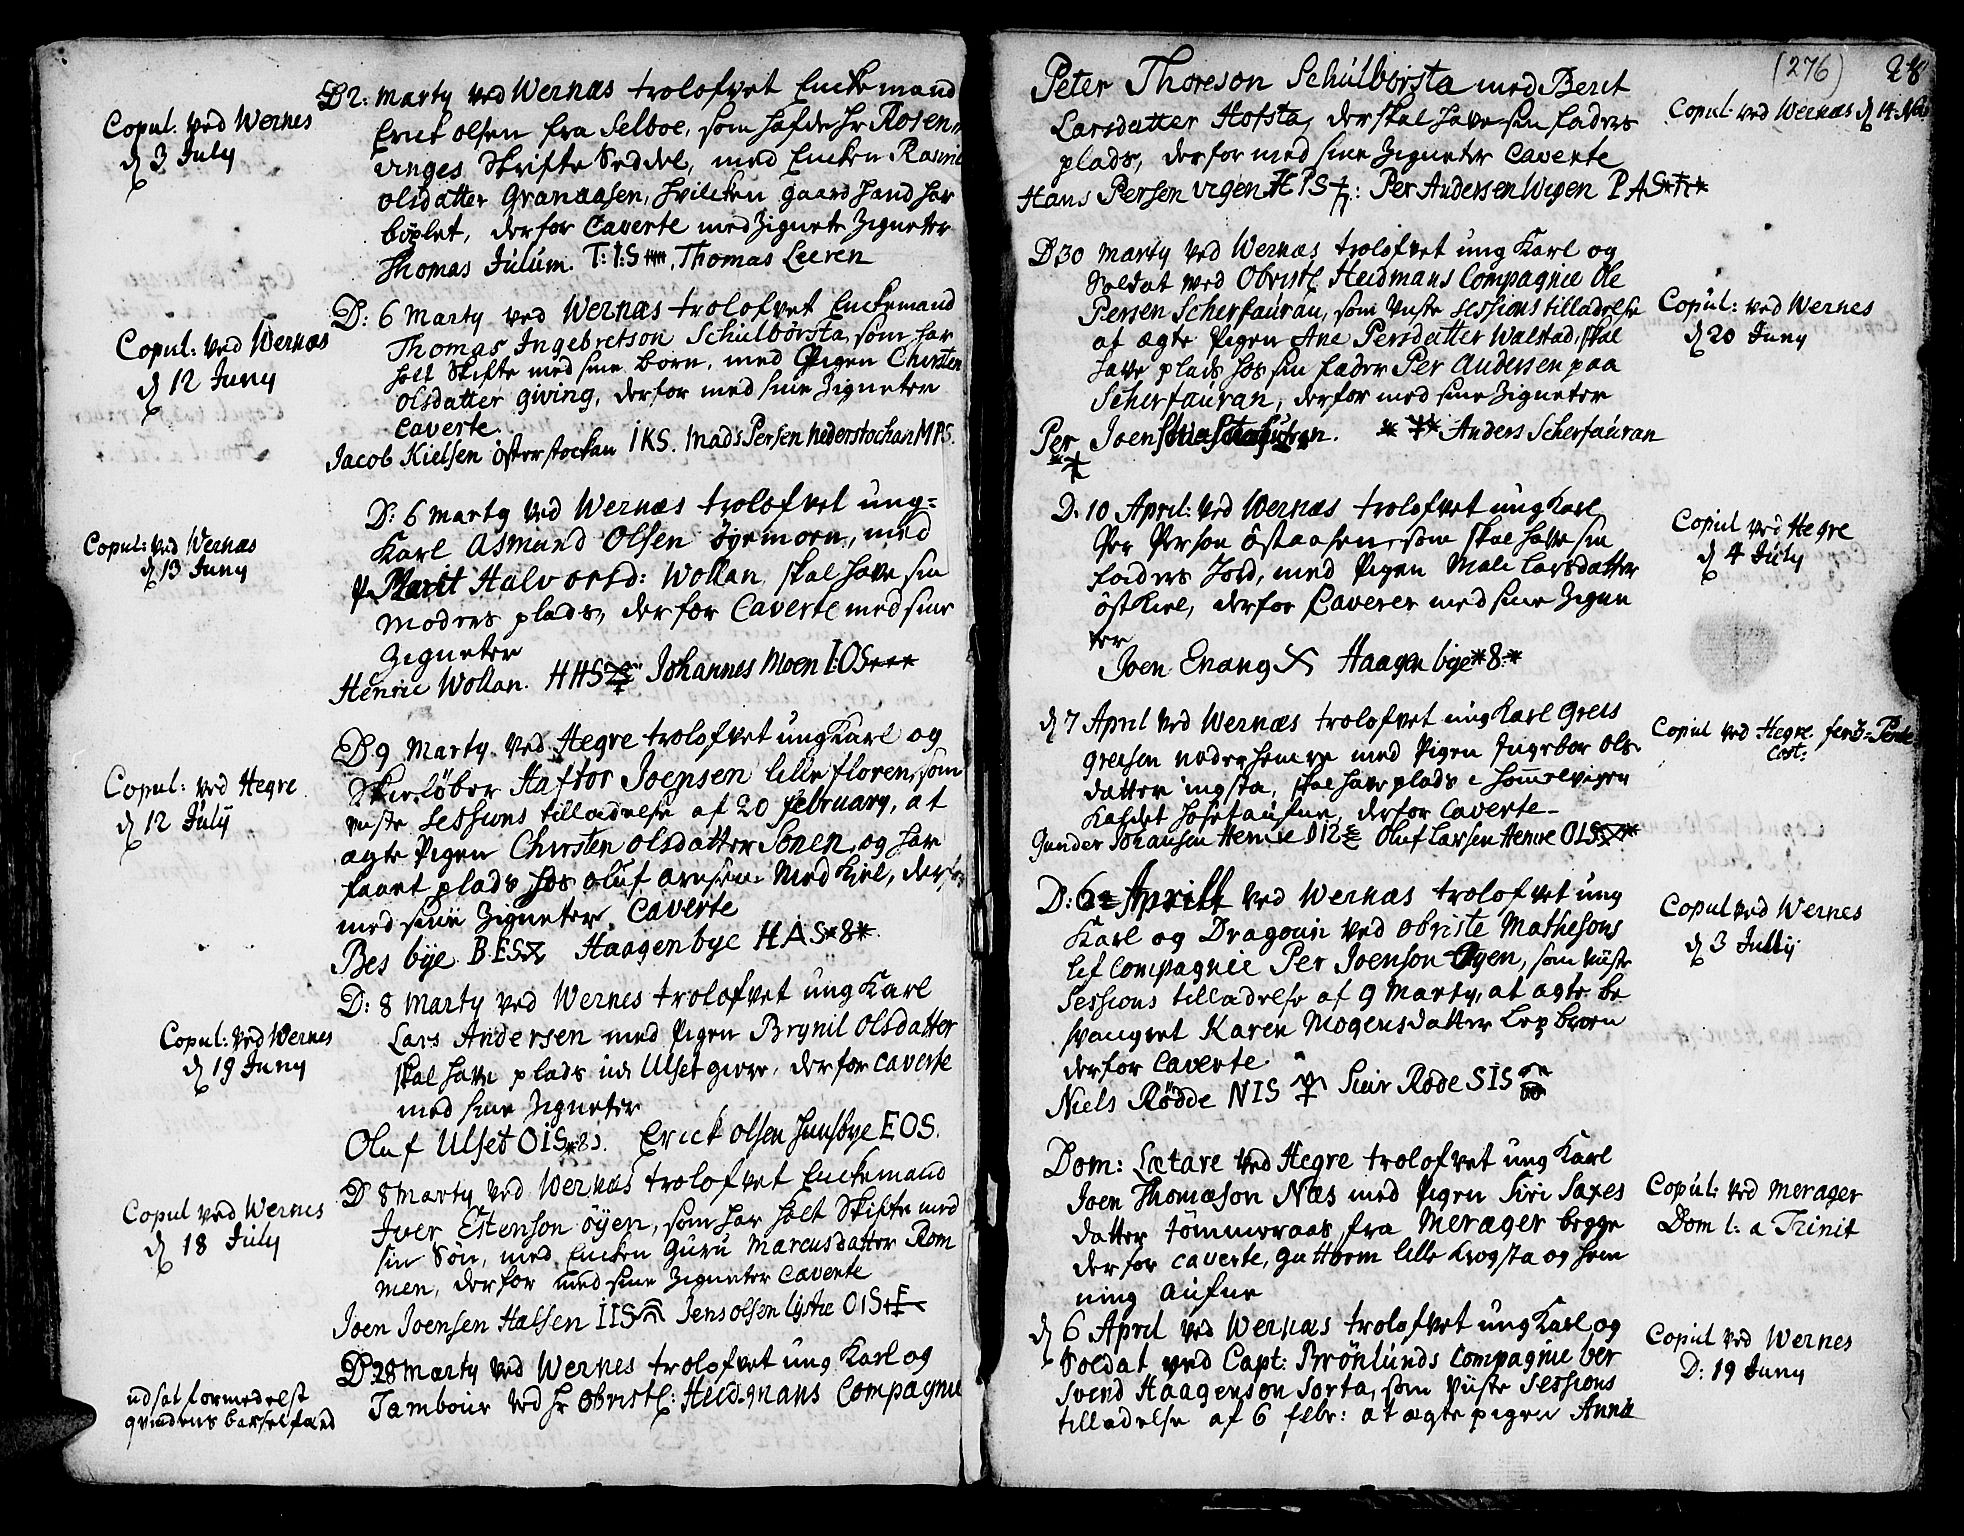 Copul: ved Wernes
d 3 July
D 2: Marty ved Wernæs trolofvet Enckemand
Erick Olsen fra Selboe, som hafde hr Rosen
vinges Skrifte Seddel, med Encken
Olsdatter Granaasen, hvilcken gaard hand har
böxlet, derfor Caverte med Zignete Zigneter
Thomas Julum. T:I:S Thomas Leeren
Copul: ved Wernæs
d 12 Juny
D: 6 Marty ved Wernæs trolofvet Enckemand
Thomas Ingebretson Schulbörsta, som har
holt Skifte med sine born, med Pigen Chirsten
Olsdatter giving, derfor med sine Zigneter
Caverte.
Jacob Kielsen österstockan IKS. Mads Persen nederstockan MPS.
Copul: ved Wernæs
d 13 Juny
D: 6 Marty ved Wernæs trolofvet ung=
Karl Asmund Olsen öyemoen, med
P. Marit Halvorsd: Wollan, skal have sin
Moders plads, derfor Caverte med sine
Zigneter
Henric Wollan. HHS Johannes Moen I:OS
Copul: ved Hegre
d 12 July
D. 9 Marty ved Hegre trolofvet ung Karl og
Skieløber Haftor Joensen lille floren, som
viste Sessions tilladelse af 20 february, at
ægte Pigen Chirsten Olsdatter Sonen, og har
faaet plads hos Oluf arnsen Med Kiel, derfor
med sine Zigneter Caverte
Bes bye BES Haagen bye HAS*8*
Copul: ved Wernes
d 19 Juny
D: 8 Marty ved Wernes trolofvet ung Karl
Lars Andersen med Pigen Brynil Olsdatter
skal have plads udi Ulset giere, derfor caverte
med sine Zigneter
Oluf Ulset OIS Erick Olsen husbye EOS.
Copul ved Wernes
d 18 July
D 8 Marty ved Wernæs trolofvet Enckemand
Iver Estenson öyen, som har holt Skifte med
sin Sön, med Encken Guru Marcusdatter Rom
men, derfor med sine Zigneter caverte
Joen Joensen Halsen IIS Jens Olsen Lystre OIS
udsat formedelst
qvindens barselfærd
D 28 Marty ved Wernes trolofvet ung Karl og
Tambour ved hr Obristl: Heidmans Compagnie
(276) 28
Peter Thoreson Schulbörsta med Berit
Larsdatter Hofsta, der skal have sin faders
plads, derfor med sine Zigneter Caverte
Hans Persen Vigen HPS : Per Andersen Wigen PAS
Copul: ved Wernæs d 14 Nov
D 30 Marty ved Wernæs trolofvet ung Karl og
Soldat ved Obristl Heidmans Compagnie Ole
Persen Scherfauran, som viste sessions tilladelse
at ægte Pigen Ane Persdatter Walstad, skal
have plads hos sin fader Per Andersen paa
Scherfauran, derfor med sine Zigneter
Per Joen Anders Scherfauran
Copul: ved Wernes
d 20 Juny
D. 10 April: ved Wernæs trolofvet ung Karl
Per Person östaasen, som skal have sin
faders Jord, med Pigen Mali Larsdatter
östkiel, derfor Caverer med sine Zigne
ter
Joen Enang Haagen bye *8*
Copul ved Hegre
d 4 July
d 7 April ved Wernæs trolofvet ung Karl Greis
Greisen nederhemre med Pigen Ingebor Ols
datter ingsta, skal have plads i Hommelvigen
Kaldet Hofstaufne, derfor Caverte
Gunder Johansen Hemre Oluf Larsen Hemre OLS
Copul ved Hegre fer 3 Pente
cost:
D: 6 April ved Wernæs trolofvet ung
Karl og Dragoun ved Obriste Mathesons
lif Compagnie Per Joenson öyen, som viste
Sessions tilladelse af 9 Marty, at ægte be
svangret Karen Mogensdatter Lexbroen
derfor Caverte
Niels Rödde NIS Siur Rode SIS
Copul ved Wernes
d 3 July
Dom: Lætare ved Hegre trolofvet ung Karl
Joen Thomæson Næs med Pigen Siri Saxes
datter tömmeraas fra Meråger begge
derfor caverte, Guttorm lille Krogsta og Hem
ning Aufne
Copul: ved Merager
Dom 1: a Trinit
d 6 April ved Wernæs trolofvet ung Karl og
Soldat ved Capt: Brönlunds Compagnie ber
Svend Haagenson Sorta, som viiste Sessions
tilladelse af 6 febr: at ægte pigen Anne
Copul ved Wernes
D: 19 Juny